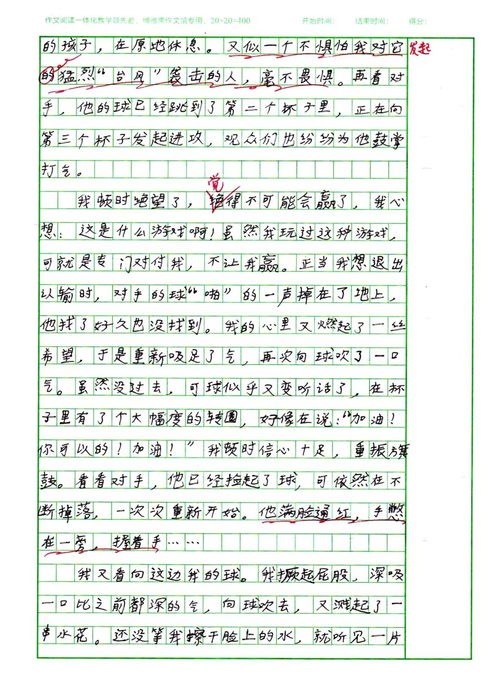 作文阅读一体化教学领先者，博雅熊作文法专用，20×20=400 开始时间： 结束时间： 得分：
的孩子，在原地休息。又似一个不惧怕我对它 发起
的猛烈“台风”袭击的人，毫不畏惧。再看对
手，他的球已经跳到了第二个杯子里，正在向
第三个杯子发起进攻，观众们也纷纷为他鼓掌
打气。
觉
我顿时绝望了，得不可能会赢了，我心
想：这是什么游戏啊！虽然我玩过这种游戏，
可就是专门对付我，不让我赢。正当我想退出
认输时，对手的球“啪”的一声掉在了地上，
他找了好久也没找到。我的心里又燃起了一丝
希望，于是重新吸足了气，再次向球吹了一口
气。虽然没过去，可球似乎又变听话了，在杯
子里有了个大幅度的转圈，好像在说：“加油！
你可以的！加油！”我顿时信心十足，重振旗
鼓。看看对手，他已经捡起了球，可依然在不
断掉落，一次次重新开始。他满脸通红，手憋
在一旁，握着手……
我又看向这边我的球。我撅起屁股，深吸
一口比之前都深的气，向球吹去，又溅起了一
串水花。还没等我擦干脸上的水，就听见一片